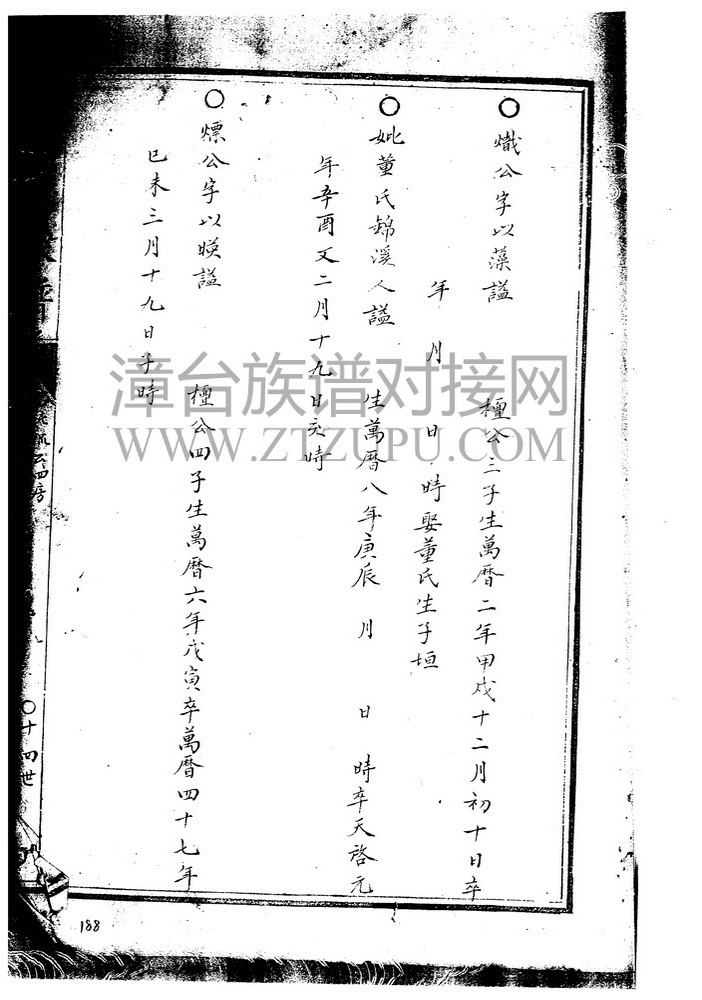 ○熾公字以藻謚　檀公三子生萬曆二年甲戌十二月初十日卒
年　月　日　時娶董氏生子垣
○妣董氏錦溪人謚　生萬曆八年庚辰　月　日　時卒天啓元
年辛酉又二月十九日亥時
○熛公字以暎謚　檀公四子生萬曆六年戊寅卒萬曆四十七年
巳未三月十九日子時
四房
○十四世
188
漳台族谱对接网
WWW.ZTZUPU.COM